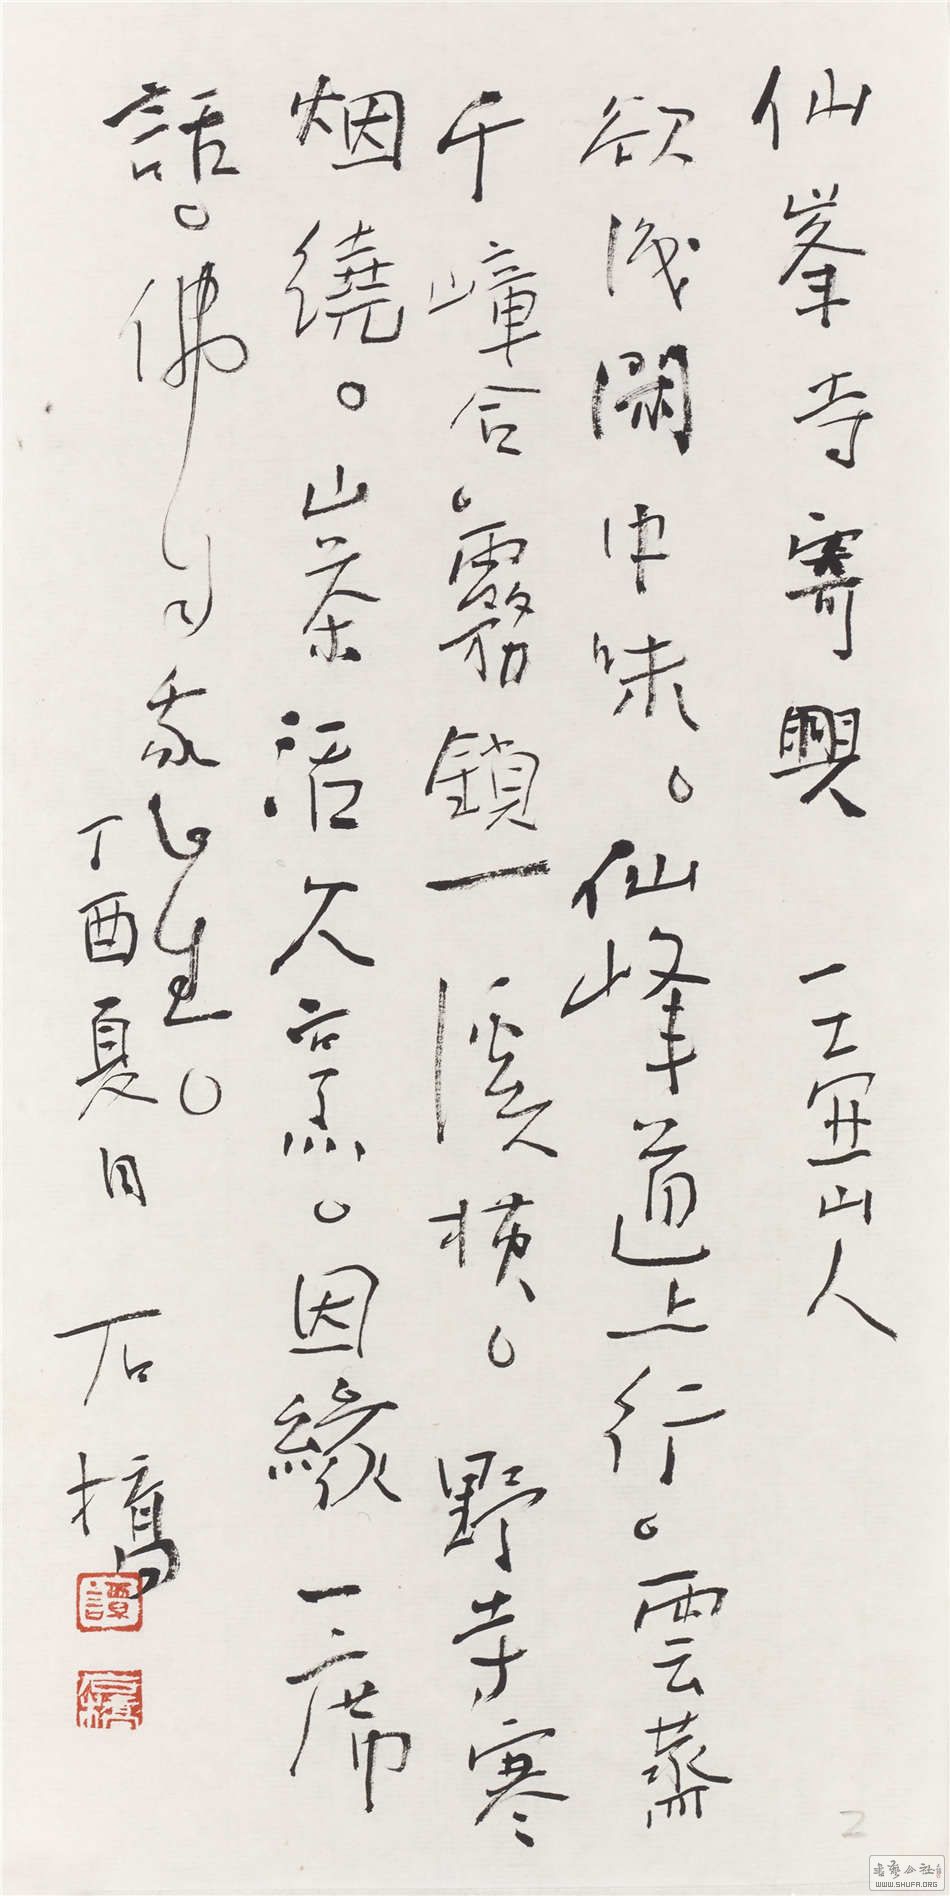 仙峯寺寄興 一壺山人
欲识閑中味。仙峰道上行。雲蒸
千嶂合。霧鎖一溪橫。野寺寒
烟繞。山茶活火烹。因緣一席
話。佛自我心生。
丁酉夏日 石橋
書法公社
WWW.SHUFA.ORG